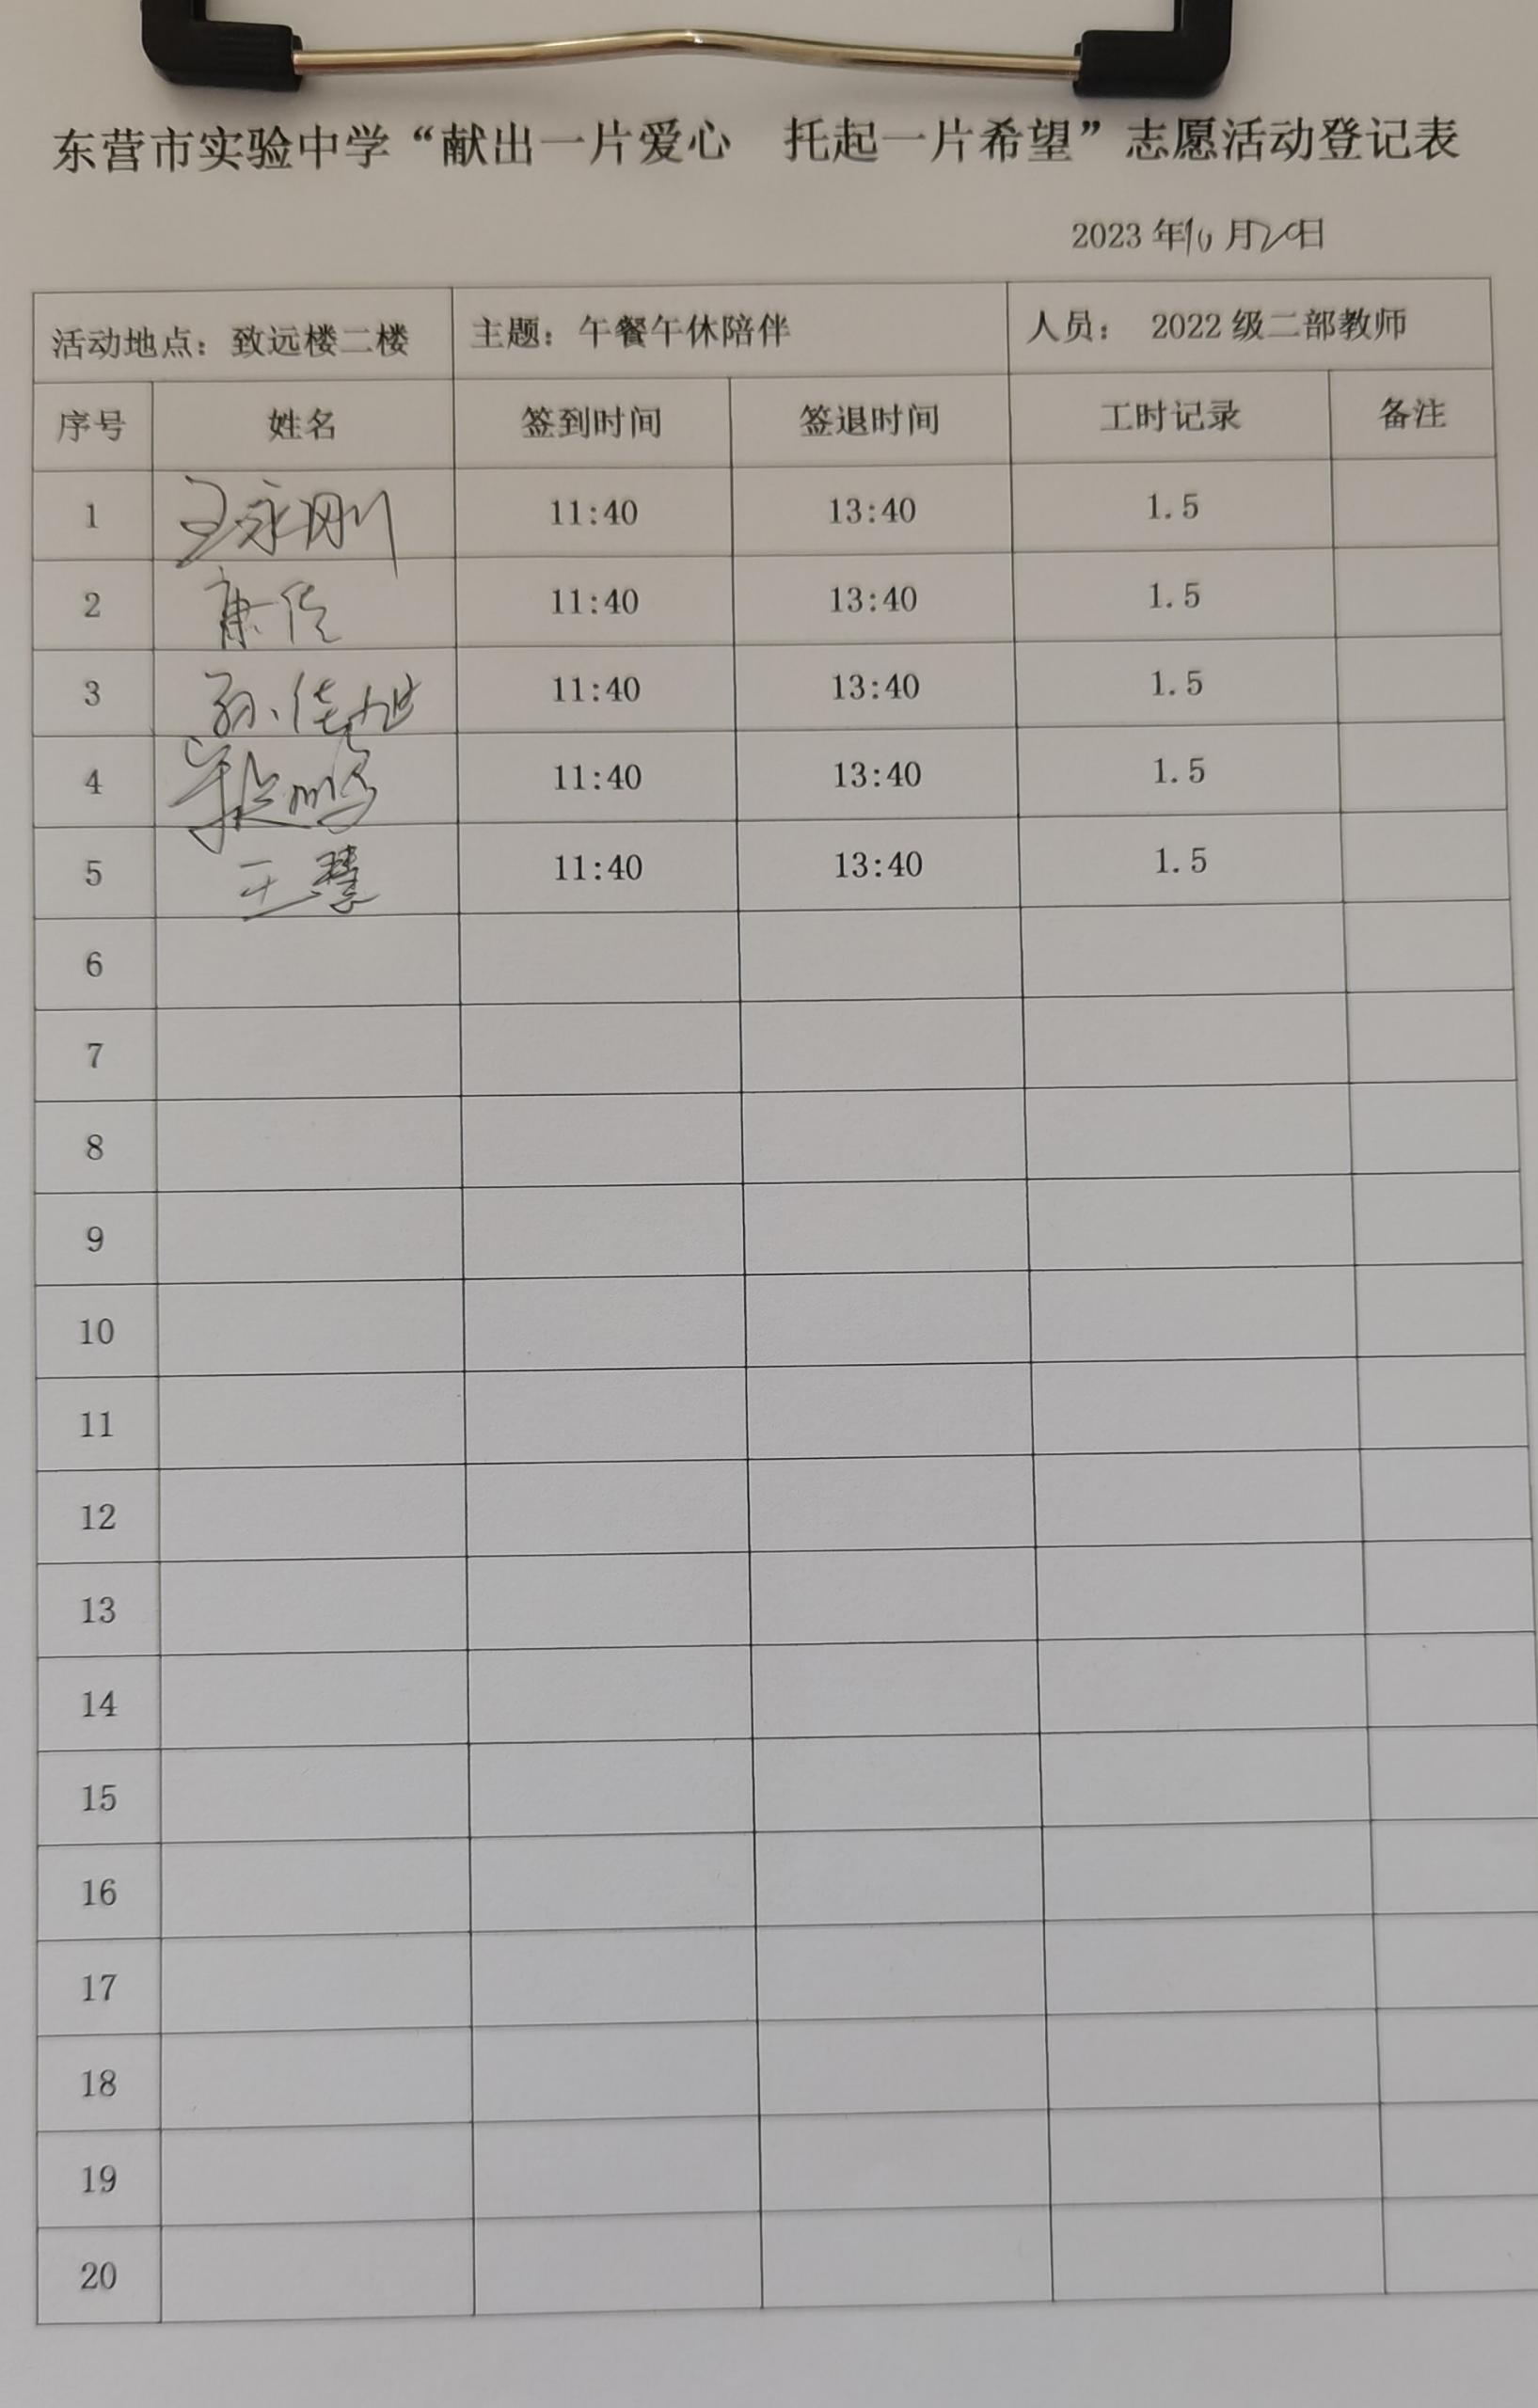 东营市实验中学“献出一片爱心 托起一片希望”志愿活动登记表
2023 年10月20日
活动地点：致远楼二楼 主题：午餐午休陪伴 人员： 2022 级二部教师
序号 姓名 签到时间 签退时间 工时记录 备注
1 王永刚 11:40 13:40 1.5
2 康佳 11:40 13:40 1.5
3 孙佳旭 11:40 13:40 1.5
4 11:40 13:40 1.5
5 王慧 11:40 13:40 1.5
6
7
8
9
10
11
12
13
14
15
16
17
18
19
20